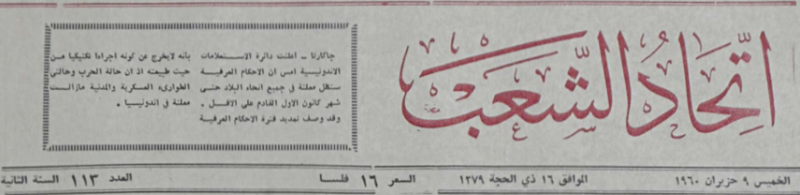 اتحاد الشعب
جاكارتا – اعلنت دائرة الاستعلامات
الاندونيسية امس ان الاحكام العرفية
ستظل معلنة في جميع انحاء البلاد حتى
شهر كانون الاول القادم على الاقل .
وقد وصف تمديد فترة الاحكام العرفية
بأنه لايخرج عن كونه اجراءا تكنيكيا من
حيث طبيعته اذ ان حالة الحرب وحالتي
الطوارىء العسكرية والمدنية مازالت
معلنة في اندونيسيا .
الخميس ٩ حزيران ١٩٦٠ الموافق ١٦ ذي الحجة ١٣٧٩ السعر ١٦ فلسا العدد ١١٣ السنة الثانية